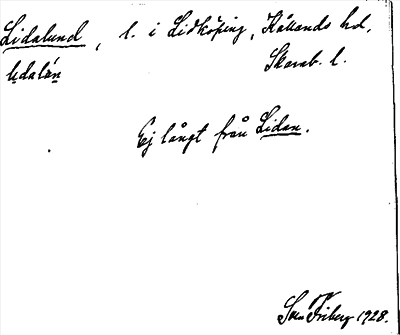 Lidalund, l. i Lidköping, Kållands hd,
Lidalán Skarab. l.
Ej långt från Lidan.
Sven Friberg 1928.